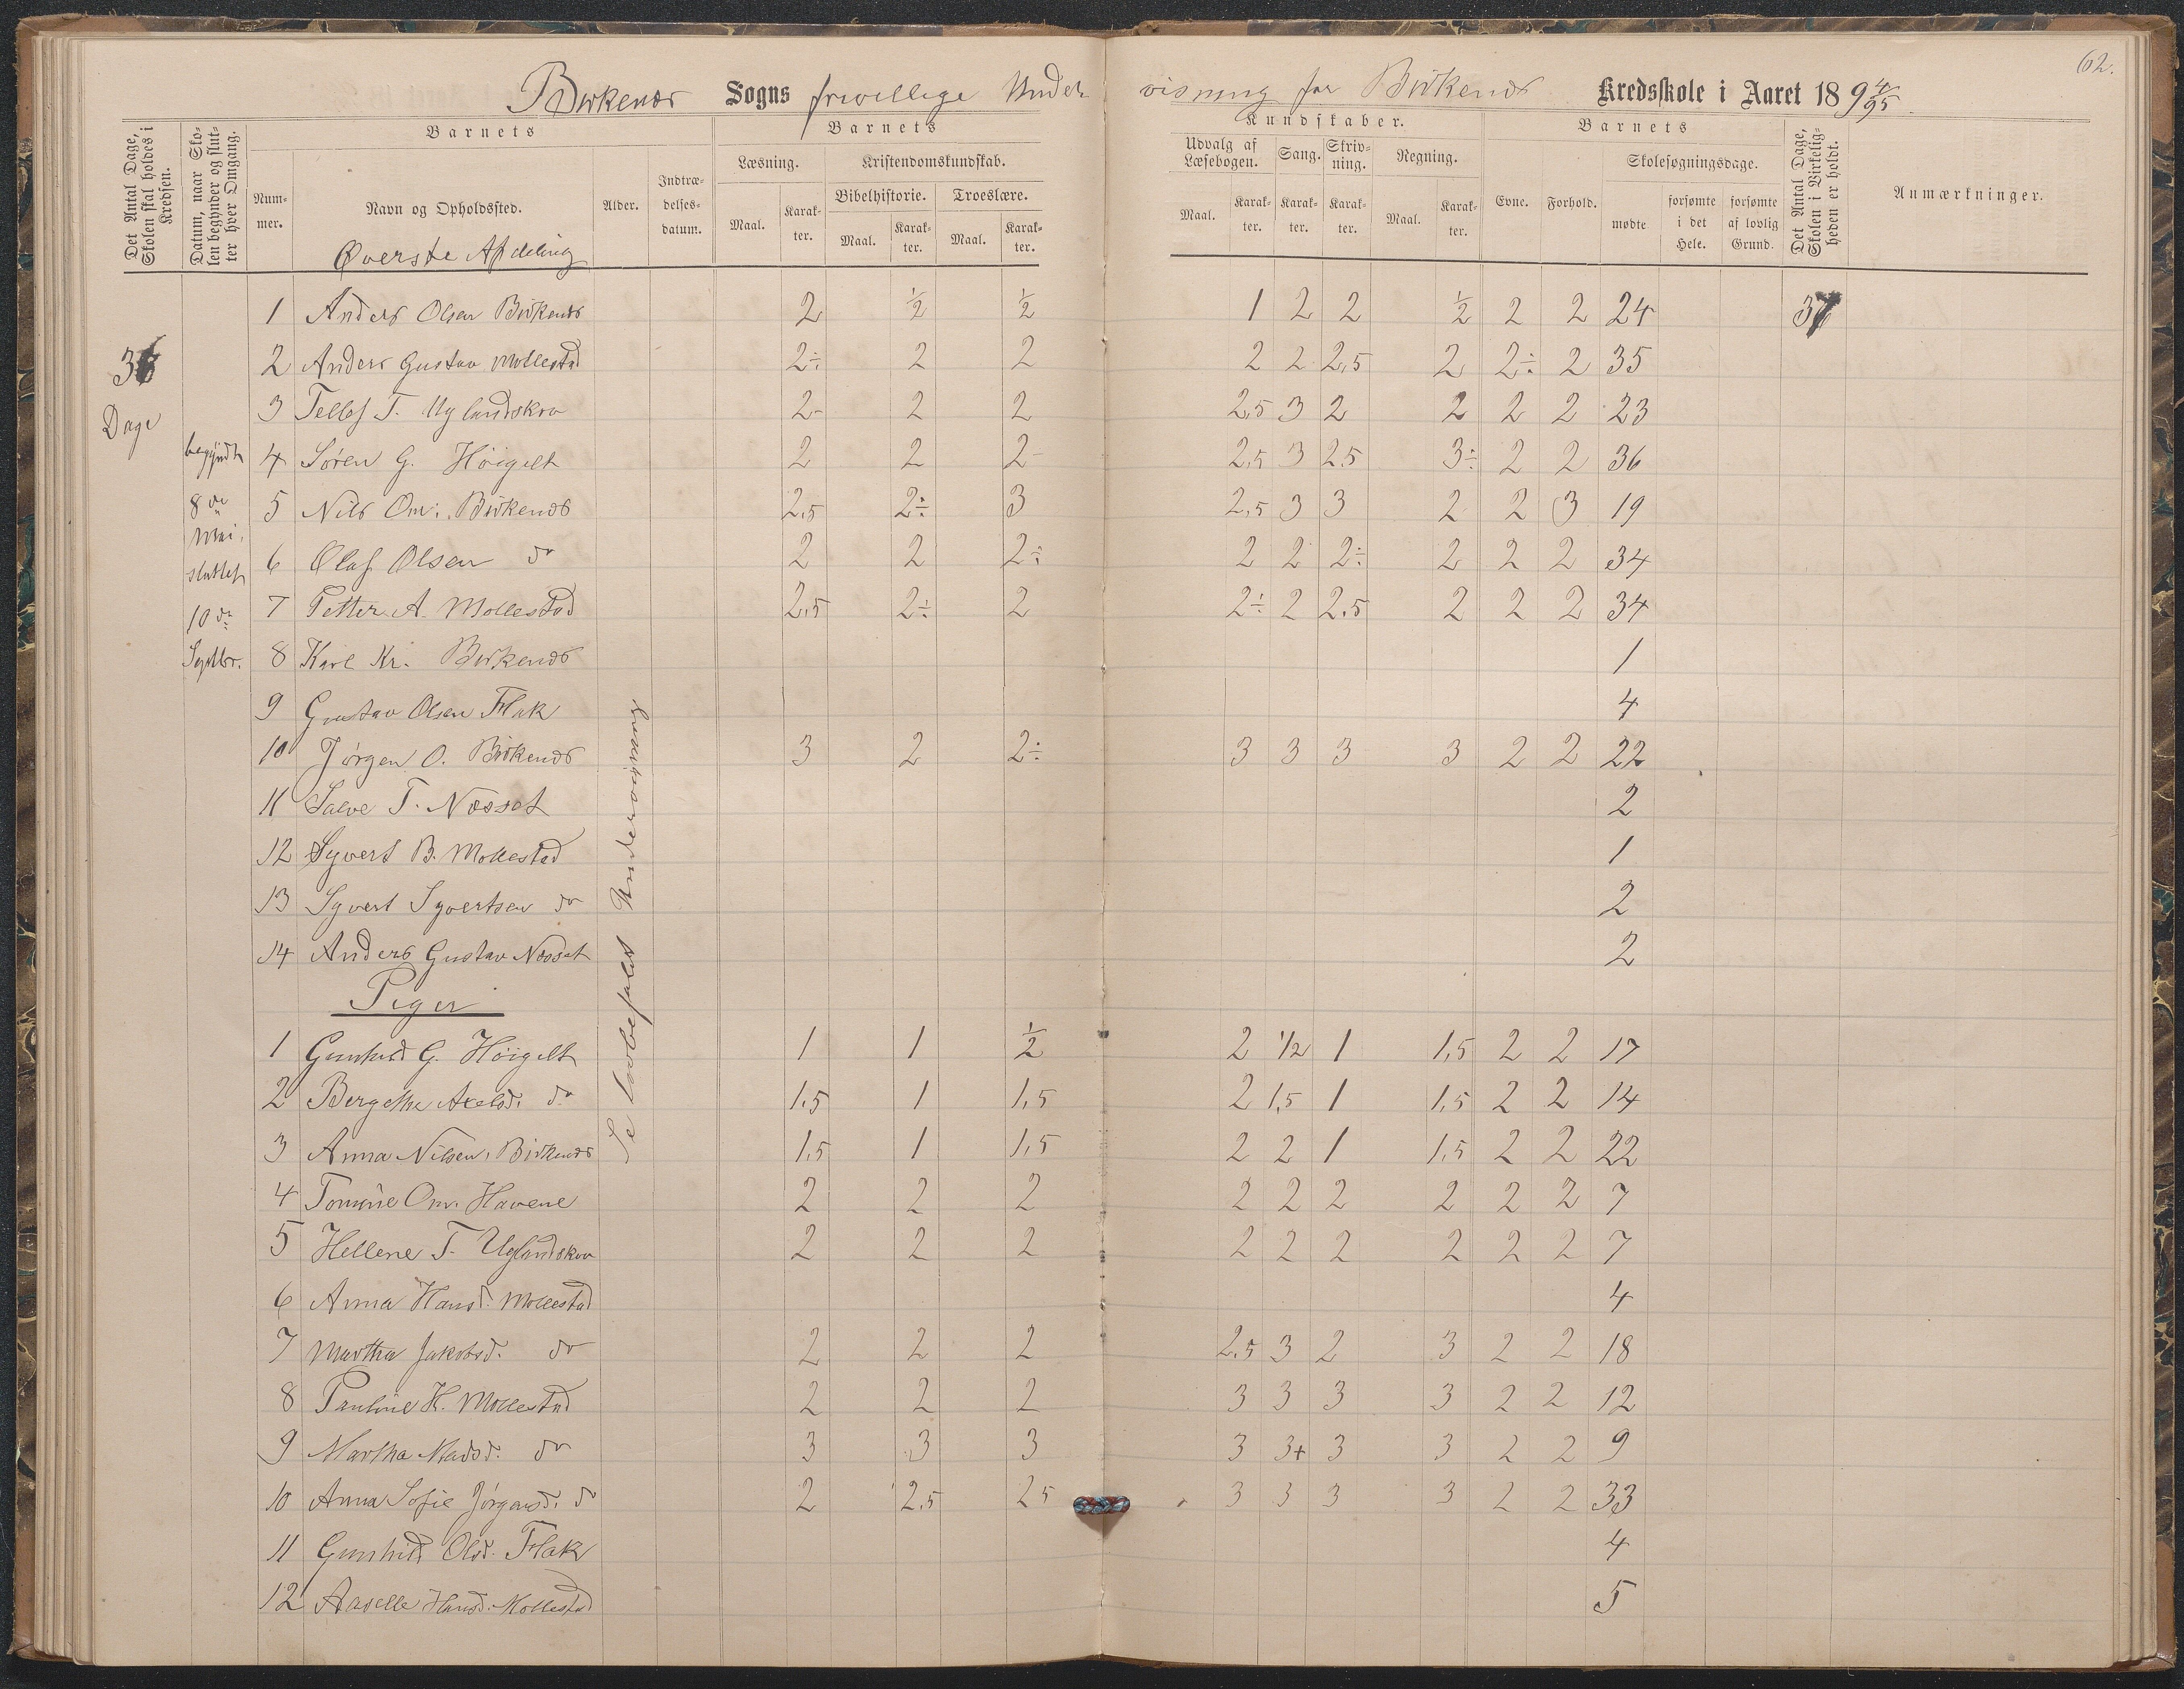 62.
Birkenæs Sogns frivillige Undervisning for Birkenæs Kredsskole i Aaret 1894/95
Det Antal Dage, Skolen skal holdes i Kredsen.
Datum, naar Skolen begynder og slutter hver Omgang.
Barnets
Nummer.
Navn og Opholdssted.
Alder.
Indtrædelsesdatum.
Barnets
Læsning.
Maal.
Karakter.
Kristendomskundskab.
Bibelhistorie.
Maal.
Karakter.
Troeslære.
Maal.
Karakter.
Kundskaber.
Udvalg af Læsebogen.
Maal.
Karakter.
Sang.
Karakter.
Skrivning.
Karakter.
Regning.
Maal.
Karakter.
Barnets
Evne.
Forhold.
Skolesøgningsdage.
mødte
forsømte i det Hele.
forsømte af lovlig Grund.
Det Antal Dage, Skolen i Virkeligheden er holdt.
Anmærkninger.
Øverste Afdeling
36
Dage
begyndt
8de
Mai.
sluttet
10de
Septbr.
Se lovbefalet Undervisning
1 Anders Olsen Birkenæs 2 1/2 1/2 1 2 2 1/2 2 2 24 37
2 Anders Gustav Mollestad 2÷ 2 2 2 2 2,5 2 2÷ 2 35
3 Tellef T. Uglandskvn 2- 2 2 2,5 3 2 2 2 2 23
4 Søren G. Höigilt 2 2 2- 2,5 3 2,5 3÷ 2 2 36
5 Nils Om. Birkenæs 2,5 2÷ 3 2,5 3 3 2 2 3 19
6 Olaf Olsen do 2 2 2÷ 2 2 2÷ 2 2 2 34
7 Petter A. Mollestad 2,5 2÷ 2 2÷ 2 2,5 2 2 2 34
8 Karl Kr. Birkenæs 1
9 Gustav Olsen Flak 4
10 Jørgen O. Birkenæs 3 2 2÷ 3 3 3 3 2 2 22
11 Salve T. Næsset 2
12 Syvert B. Mollestad 1
13 Syvert Syvertsen do 2
14 Anders Gustav Næsset 2
Piger
1 Gunhild G. Höigilt 1 1 1/2 2 1/2 1 1,5 2 2 17
2 Bergethe Axelsd. do 1,5 1 1,5 2 1,5 1 1,5 2 2 14
3 Anna Nilsen, Birkenæs 1,5 1 1,5 2 2 1 1,5 2 2 22
4 Tomine Om. Havene 2 2 2 2 2 2 2 2 2 7
5 Hellene T. Uglandskvn 2 2 2 2 2 2 2 2 2 7
6 Anna Hansd. Mollestad 4
7 Martha Jakobsd. do 2 2 2 2,5 3 2 3 2 2 18
8 Pauline H. Mollestad 2 2 2 3 3 3 3 2 2 12
9 Martha Madsd. do 3 3 3 3 3+ 3 3 2 2 9
10 Anna Sofie Jörgensd. d 2 2,5 2,5 3 3 3 3 2 2 33
11 Gunhild Olsd. Flak 4
12 Aaselle Hansd. Mollestad 5